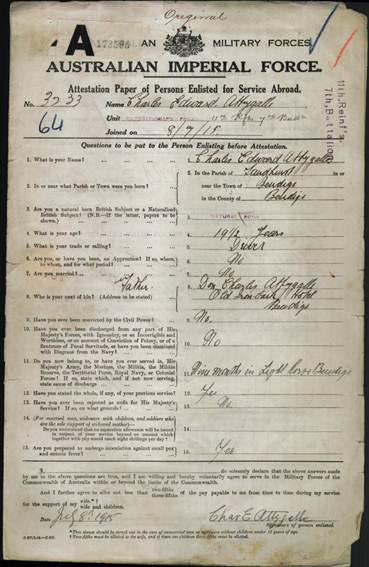 Original
A 172595 AN MILITARY FORCES.
AUSTRALIAN IMPERIAL FORCE.
Attestation Paper of Persons Enlisted for Service Abroad.
No. 3233 Name Charles Edward Attygalle
64 Unit 11th Rfts 7th Battn
Joined on 8/7/15
11th Reinf's
7th Battalion
Questions to be put to the Person Enlisting before Attestation.
1. What is your Name? 1. Charles Edward Attygalle
2. In or near what Parish or Town were you born? 2. In the Parish of Sandhurst
near the Town of Bendigo
in the County of Bendigo
3. Are you a natural born British Subject or a Naturalized British Subject? (N.B.—If the latter, papers to be shown). 3. Natural Born
4. What is your age? 4. 19½ Years
5. What is your trade or calling? 5. Driver
6. Are you, or have you been, an Apprentice? If so, where, to whom, and for what period? 6. No
7. Are you married? 7. No
8. Who is your next of kin? (Address to be stated) Father 8. Don Charles Attygalle
Old Iron Bark Hotel
Bendigo
9. Have you ever been convicted by the Civil Power? 9. No.
10. Have you ever been discharged from any part of His Majesty's Forces, with Ignominy, or as Incorrigible and Worthless, or on account of Conviction of Felony, or of a Sentence of Penal Servitude, or have you been dismissed with Disgrace from the Navy? 10. No
11. Do you now belong to, or have you ever served in, His Majesty's Army, the Marines, the Militia, the Militia Reserve, the Territorial Force, Royal Navy, or Colonial Forces? If so, state which, and if not now serving, state cause of discharge 11. Nine months in Light Horse Bendigo
12. Have you stated the whole, if any, of your previous service? 12. Yes
13. Have you ever been rejected as unfit for His Majesty's Service? If so, on what grounds? 13. No.
14. (For married men, widowers with children, and soldiers who are the sole support of widowed mother)—
Do you understand that no separation allowance will be issued in respect of your service beyond an amount which together with pay would reach eight shillings per day? 14.
15. Are you prepared to undergo inoculation against small pox and enteric fever? 15. Yes
I, do solemnly declare that the above answers made by me to the above questions are true, and I am willing and hereby voluntarily agree to serve in the Military Forces of the Commonwealth of Australia within or beyond the limits of the Commonwealth.
And I further agree to allot not less than two-fifths three-fifths of the pay payable to me from time to time during my service for the support of my wife.* wife and children.
Date July 8th 1915 Chas E. Attygalle
Signature of person enlisted.